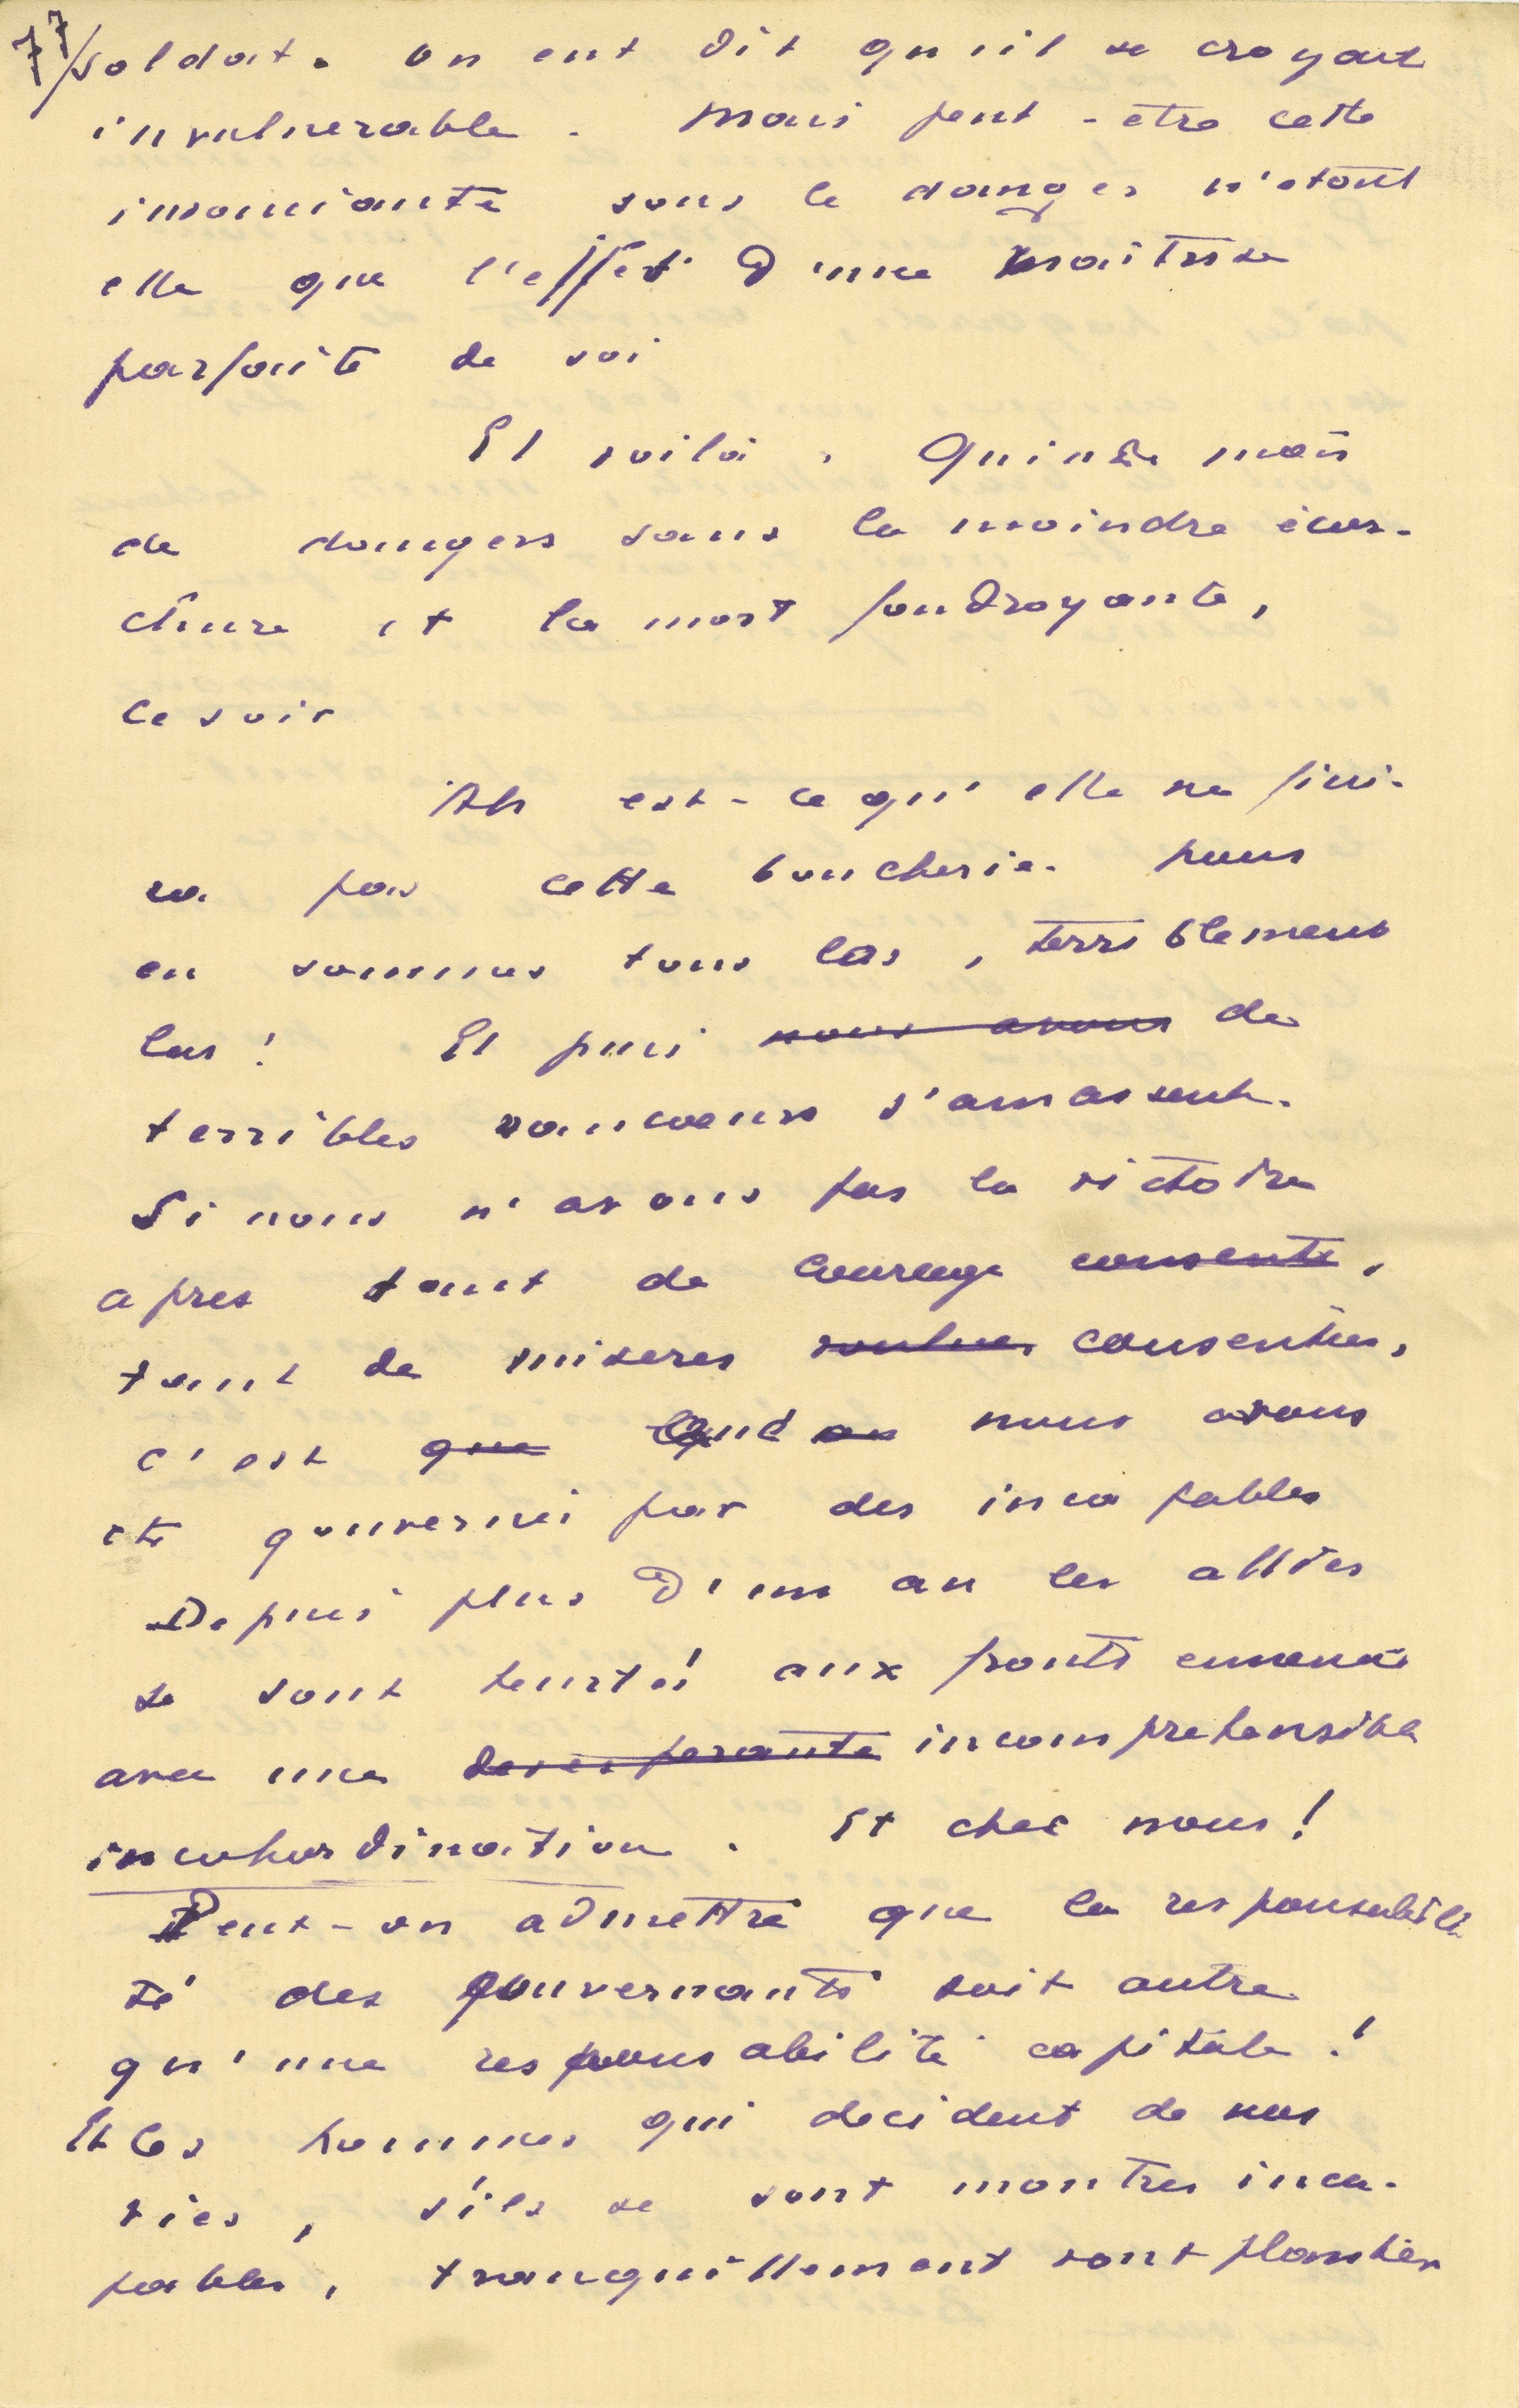 77/soldat. On eut dit qu'il se croyait
invulnerable. Mais peut-etre cette
insouciante sous le danger n'etait
elle que l'effet d'une maitrise
parfaite de soi
Et voila. Quinze mois
de dangers sans la moindre écor-
chure et la mort foudroyante,
ce soir
Ah est-ce qu'elle ne fini-
ra pas cette boucherie. Nous
en sommes tous las, terriblement
las! Et puis nous avons de
terribles rancoeurs s'amassent.
Si nous n'avons pas la victoire
apres tant de courage consenti,
tant de miseres voulues consenties,
c'est que quand on nous avons
été gouvernés par des incapables
Depuis plus d'un an les alliés
se sont heurtés aux fronts ennemis
avec une desesperante incomprehensible
incohordination. Et chez nous!
Peut-on admettre que la responsabili
té des gouvernants soit autre
qu'une responsabilité capitale!
Et les hommes qui decident de nos
vies, s'ils se sont montres inca-
pables, tranquillement vont planter